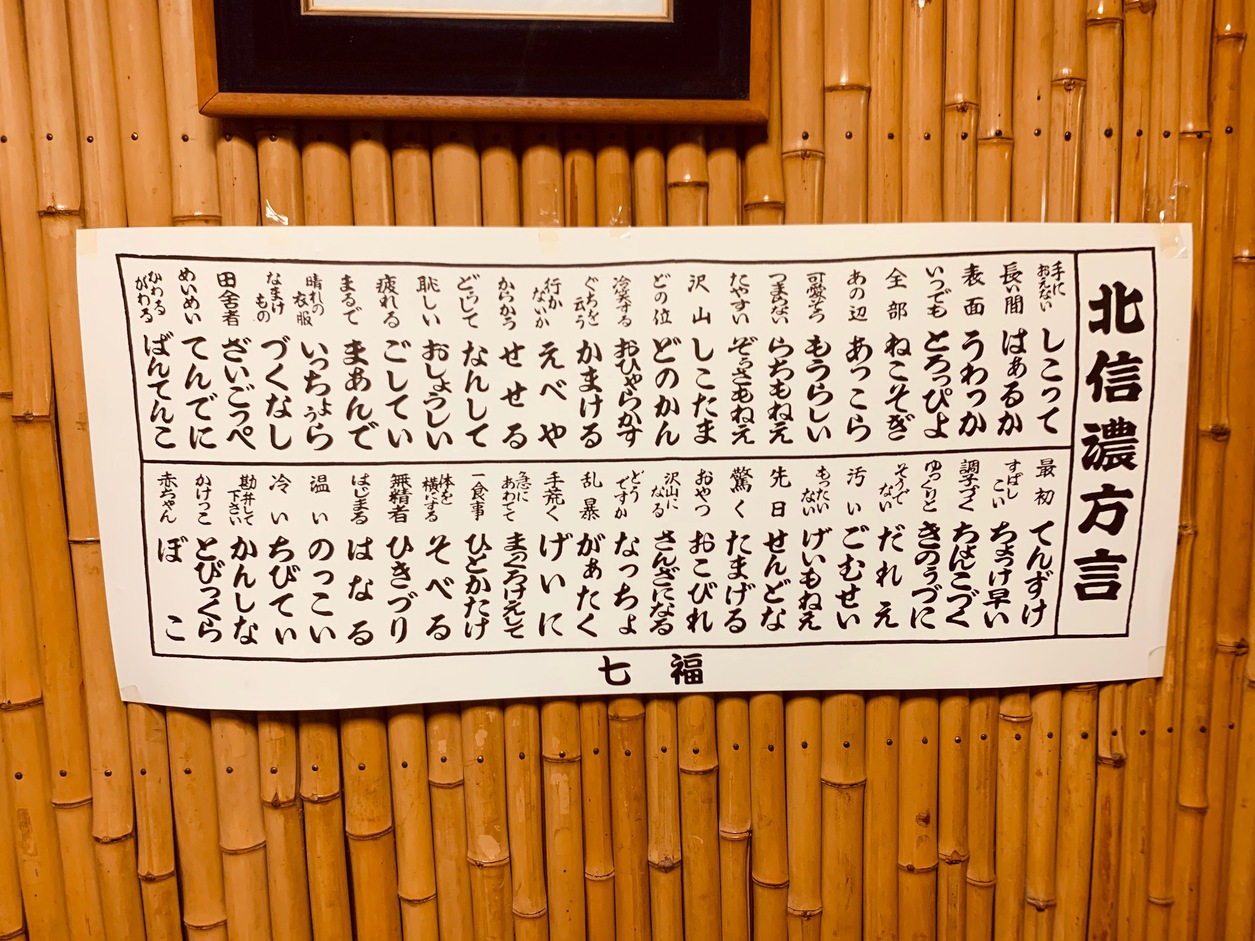 北信濃方言
手におえない しこって
長い間 はぁるか
表面 うわっか
いつでも とろっぴよ
全部 ねこそぎ
あの辺 あっこら
可愛そう もうらしい
つまらない らちもねえ
たやすい ぞうさもねえ
沢山 しこたま
どの位 どのかん
冷笑する おひゃらかす
ぐちを云う かまける
行かないか えべや
からかう せせる
どうして なんして
恥しい おしょうしい
疲れる ごしてい
まるで まあんで
晴れの衣服 いっちょうら
なまけもの づくなし
田舎者 ざいごっぺ
めいめい てんでに
かわるがわる ばんてんこ
最初 てんずけ
すばしこい ちょうけ早い
調子づく ちょんこづく
ゆっくりと きのうづに
そうでない だれえ
汚い ごむせい
もったいない げいもねえ
先日 せんどな
驚く たまげる
おやつ おこびれ
沢山になる さんざになる
どうですか なっちょ
乱暴 がぁたく
手荒く げいに
急にあわてて まくろけえして
一食事 ひとかたけ
体を横にする そべる
無精者 ひきづり
はじまる はなる
温い のっこい
冷い ちびてい
勘弁して下さい かんしな
かけっこ とびっくら
赤ちゃん ぼこ
七福